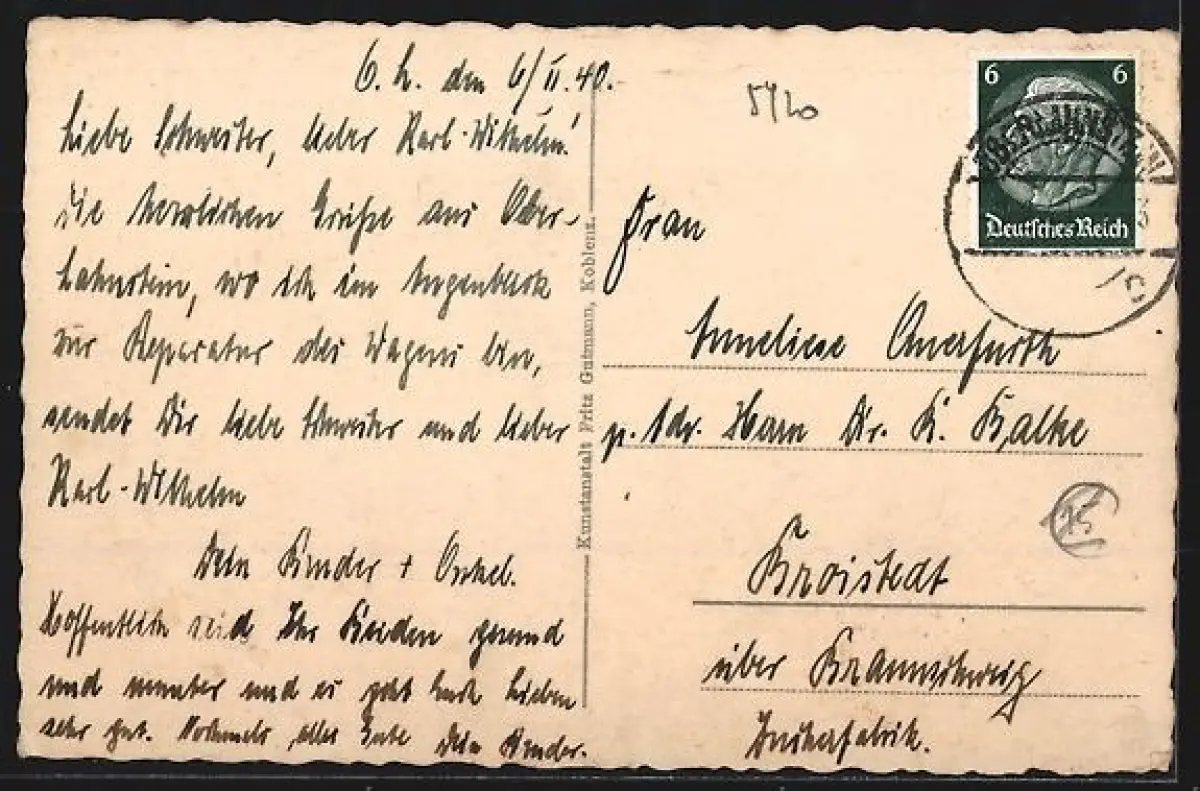 O. L. den 6/II.40.
Liebe Schwester, lieber Karl-Wilhelm!
Die herzlichen Grüße aus Ober-
Lahnstein, wo ich im Augenblick
zur Reparatur des Wagens bin,
sendet Dir liebe Schwester und lieber
Karl-Wilhelm
Dein Bruder + Onkel.
Hoffentlich seid Ihr Beiden gesund
und munter und es geht Euch Lieben
sehr gut. Nochmals alles Gute Dein Bruder.
Kunstanstalt Fritz Gutmann, Koblenz.
5420
6 6
Deutsches Reich
OBERLAHNSTEIN
c
Frau
Anneliese Querfurth
p. Adr. Herrn Dir. K. Kalke
75
Broistedt
über Braunschweig
Zuckerfabrik.